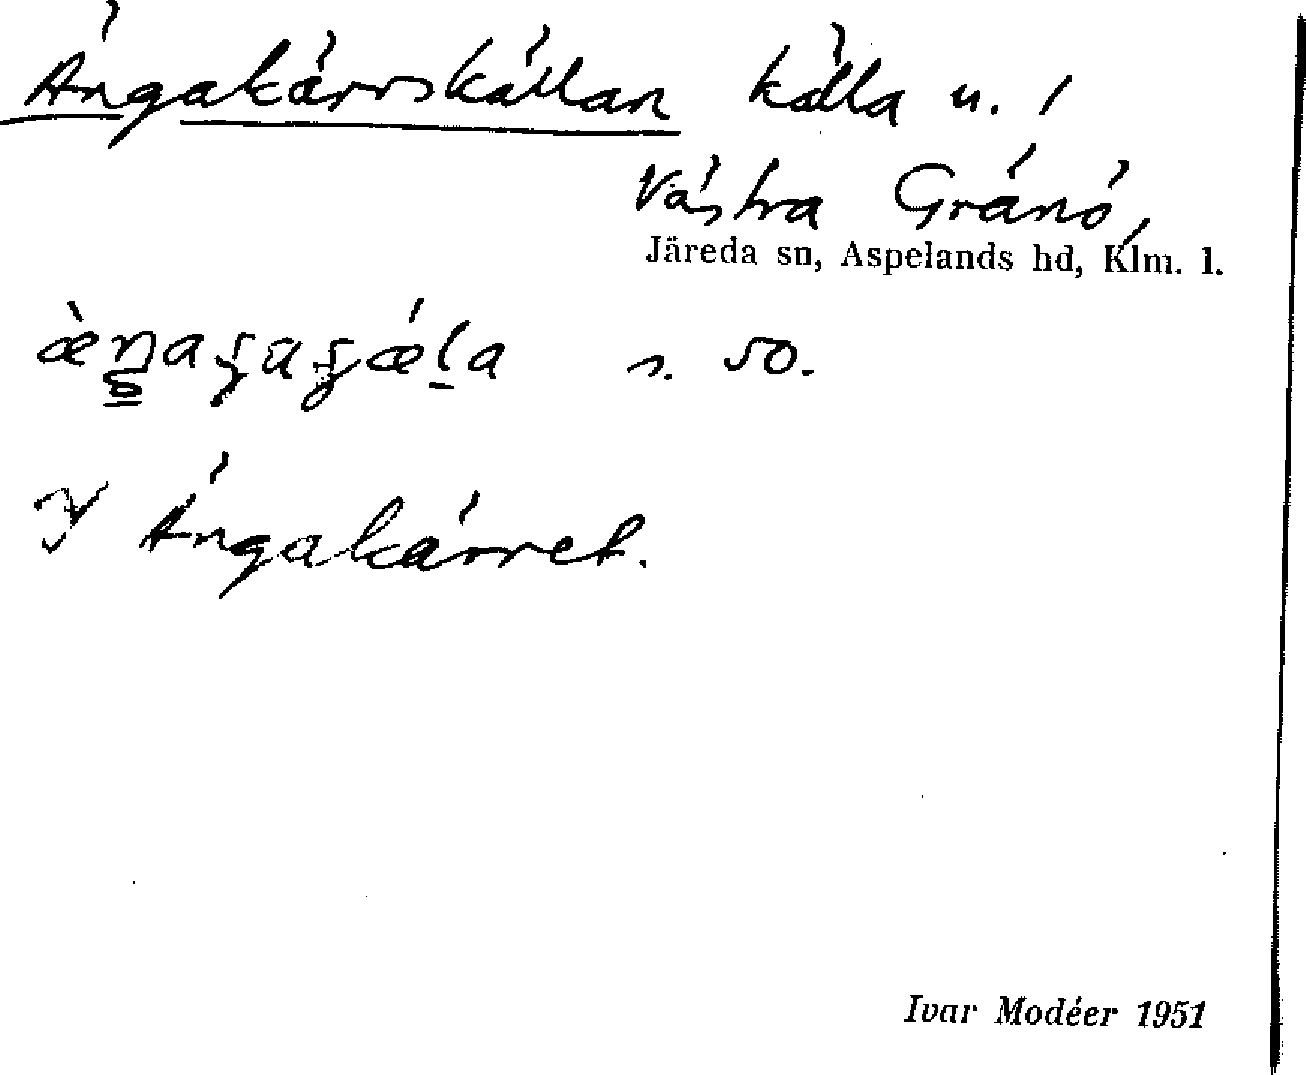 Ängakärrskällan källa u. /
Västra Gränö,
Järeda sn, Aspelands hd, Klm. l.
s. 50.
I Ängakärret.
Ivar Modéer 1951